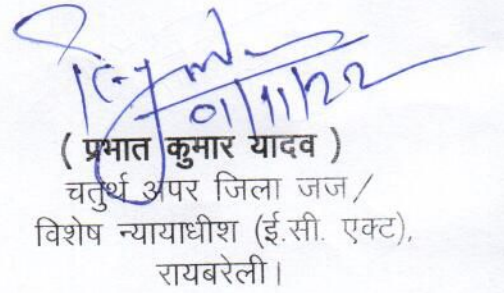 01/11/22
( प्रभात कुमार यादव )
चतुर्थ अपर जिला जज /
विशेष न्यायाधीश (ई.सी. एक्ट),
रायबरेली।